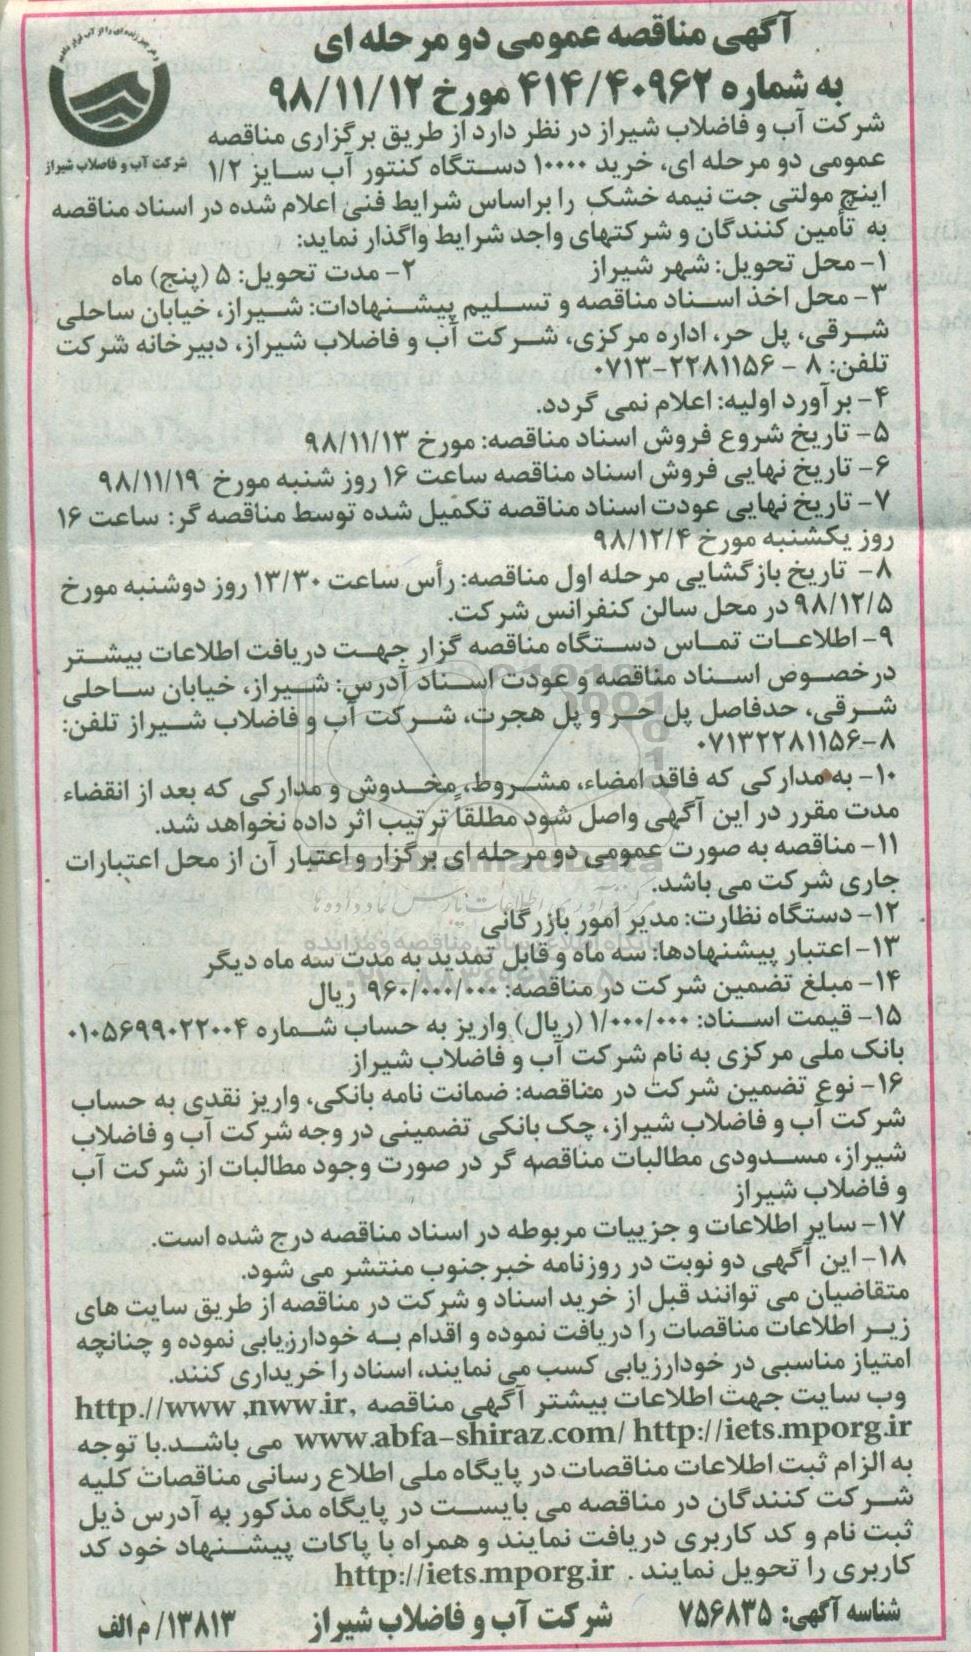 آگهی مناقصه عمومی دو مرحله ای
به شماره ۴۱۴/۴۰۹۶۲ مورخ ۹۸/۱۱/۱۲
شرکت آب و فاضلاب شیراز
شرکت آب و فاضلاب شیراز در نظر دارد از طریق برگزاری مناقصه
عمومی دو مرحله ای، خرید ۱۰۰۰۰ دستگاه کنتور آب سایز ۱/۲
اینچ مولتی جت نیمه خشک را براساس شرایط فنی اعلام شده در اسناد مناقصه
به تأمین کنندگان و شرکتهای واجد شرایط واگذار نماید:
۱- محل تحویل: شهر شیراز ۲- مدت تحویل: ۵ (پنج) ماه
۳- محل اخذ اسناد مناقصه و تسلیم پیشنهادات: شیراز، خیابان ساحلی
شرقی، پل حر، اداره مرکزی، شرکت آب و فاضلاب شیراز، دبیرخانه شرکت
تلفن: ۸ - ۲۲۸۱۱۵۶-۰۷۱۳
۴- برآورد اولیه: اعلام نمی گردد.
۵- تاریخ شروع فروش اسناد مناقصه: مورخ ۹۸/۱۱/۱۳
۶- تاریخ نهایی فروش اسناد مناقصه ساعت ۱۶ روز شنبه مورخ ۹۸/۱۱/۱۹
۷- تاریخ نهایی عودت اسناد مناقصه تکمیل شده توسط مناقصه گر: ساعت ۱۶
روز یکشنبه مورخ ۹۸/۱۲/۴
۸- تاریخ بازگشایی مرحله اول مناقصه: رأس ساعت ۱۳/۳۰ روز دوشنبه مورخ
۹۸/۱۲/۵ در محل سالن کنفرانس شرکت.
۹- اطلاعات تماس دستگاه مناقصه گزار جهت دریافت اطلاعات بیشتر
درخصوص اسناد مناقصه و عودت اسناد آدرس: شیراز، خیابان ساحلی
شرقی، حدفاصل پل حر و پل هجرت، شرکت آب و فاضلاب شیراز تلفن:
۰۷۱۳۲۲۸۱۱۵۶-۸
۱۰- به مدارکی که فاقد امضاء، مشروط، مخدوش و مدارکی که بعد از انقضاء
مدت مقرر در این آگهی واصل شود مطلقاً ترتیب اثر داده نخواهد شد.
۱۱- مناقصه به صورت عمومی دو مرحله ای برگزار و اعتبار آن از محل اعتبارات
جاری شرکت می باشد.
۱۲- دستگاه نظارت: مدیر امور بازرگانی
۱۳- اعتبار پیشنهادها: سه ماه و قابل تمدید به مدت سه ماه دیگر
۱۴- مبلغ تضمین شرکت در مناقصه: ۹۶۰/۰۰۰/۰۰۰ ریال
۱۵- قیمت اسناد: ۱/۰۰۰/۰۰۰ (ریال) واریز به حساب شماره ۰۱۰۵۶۹۹۰۲۲۰۰۴
بانک ملی مرکزی به نام شرکت آب و فاضلاب شیراز
۱۶- نوع تضمین شرکت در مناقصه: ضمانت نامه بانکی، واریز نقدی به حساب
شرکت آب و فاضلاب شیراز، چک بانکی تضمینی در وجه شرکت آب و فاضلاب
شیراز، مسدودی مطالبات مناقصه گر در صورت وجود مطالبات از شرکت آب
و فاضلاب شیراز
۱۷- سایر اطلاعات و جزییات مربوطه در اسناد مناقصه درج شده است.
۱۸- این آگهی دو نوبت در روزنامه خبرجنوب منتشر می شود.
متقاضیان می توانند قبل از خرید اسناد و شرکت در مناقصه از طریق سایت های
زیر اطلاعات مناقصات را دریافت نموده و اقدام به خودارزیابی نموده و چنانچه
امتیاز مناسبی در خودارزیابی کسب می نمایند، اسناد را خریداری کنند.
وب سایت جهت اطلاعات بیشتر آگهی مناقصه http.//www ,nww.ir,
www.abfa-shiraz.com/ http://iets.mporg.ir می باشد. با توجه
به الزام ثبت اطلاعات مناقصات در پایگاه ملی اطلاع رسانی مناقصات کلیه
شرکت کنندگان در مناقصه می بایست در پایگاه مذکور به آدرس ذیل
ثبت نام و کد کاربری دریافت نمایند و همراه با پاکات پیشنهاد خود کد
کاربری را تحویل نمایند . http://iets.mporg.ir
شناسه آگهی: ۷۵۶۸۳۵ شرکت آب و فاضلاب شیراز ۱۳۸۱۳/ م الف